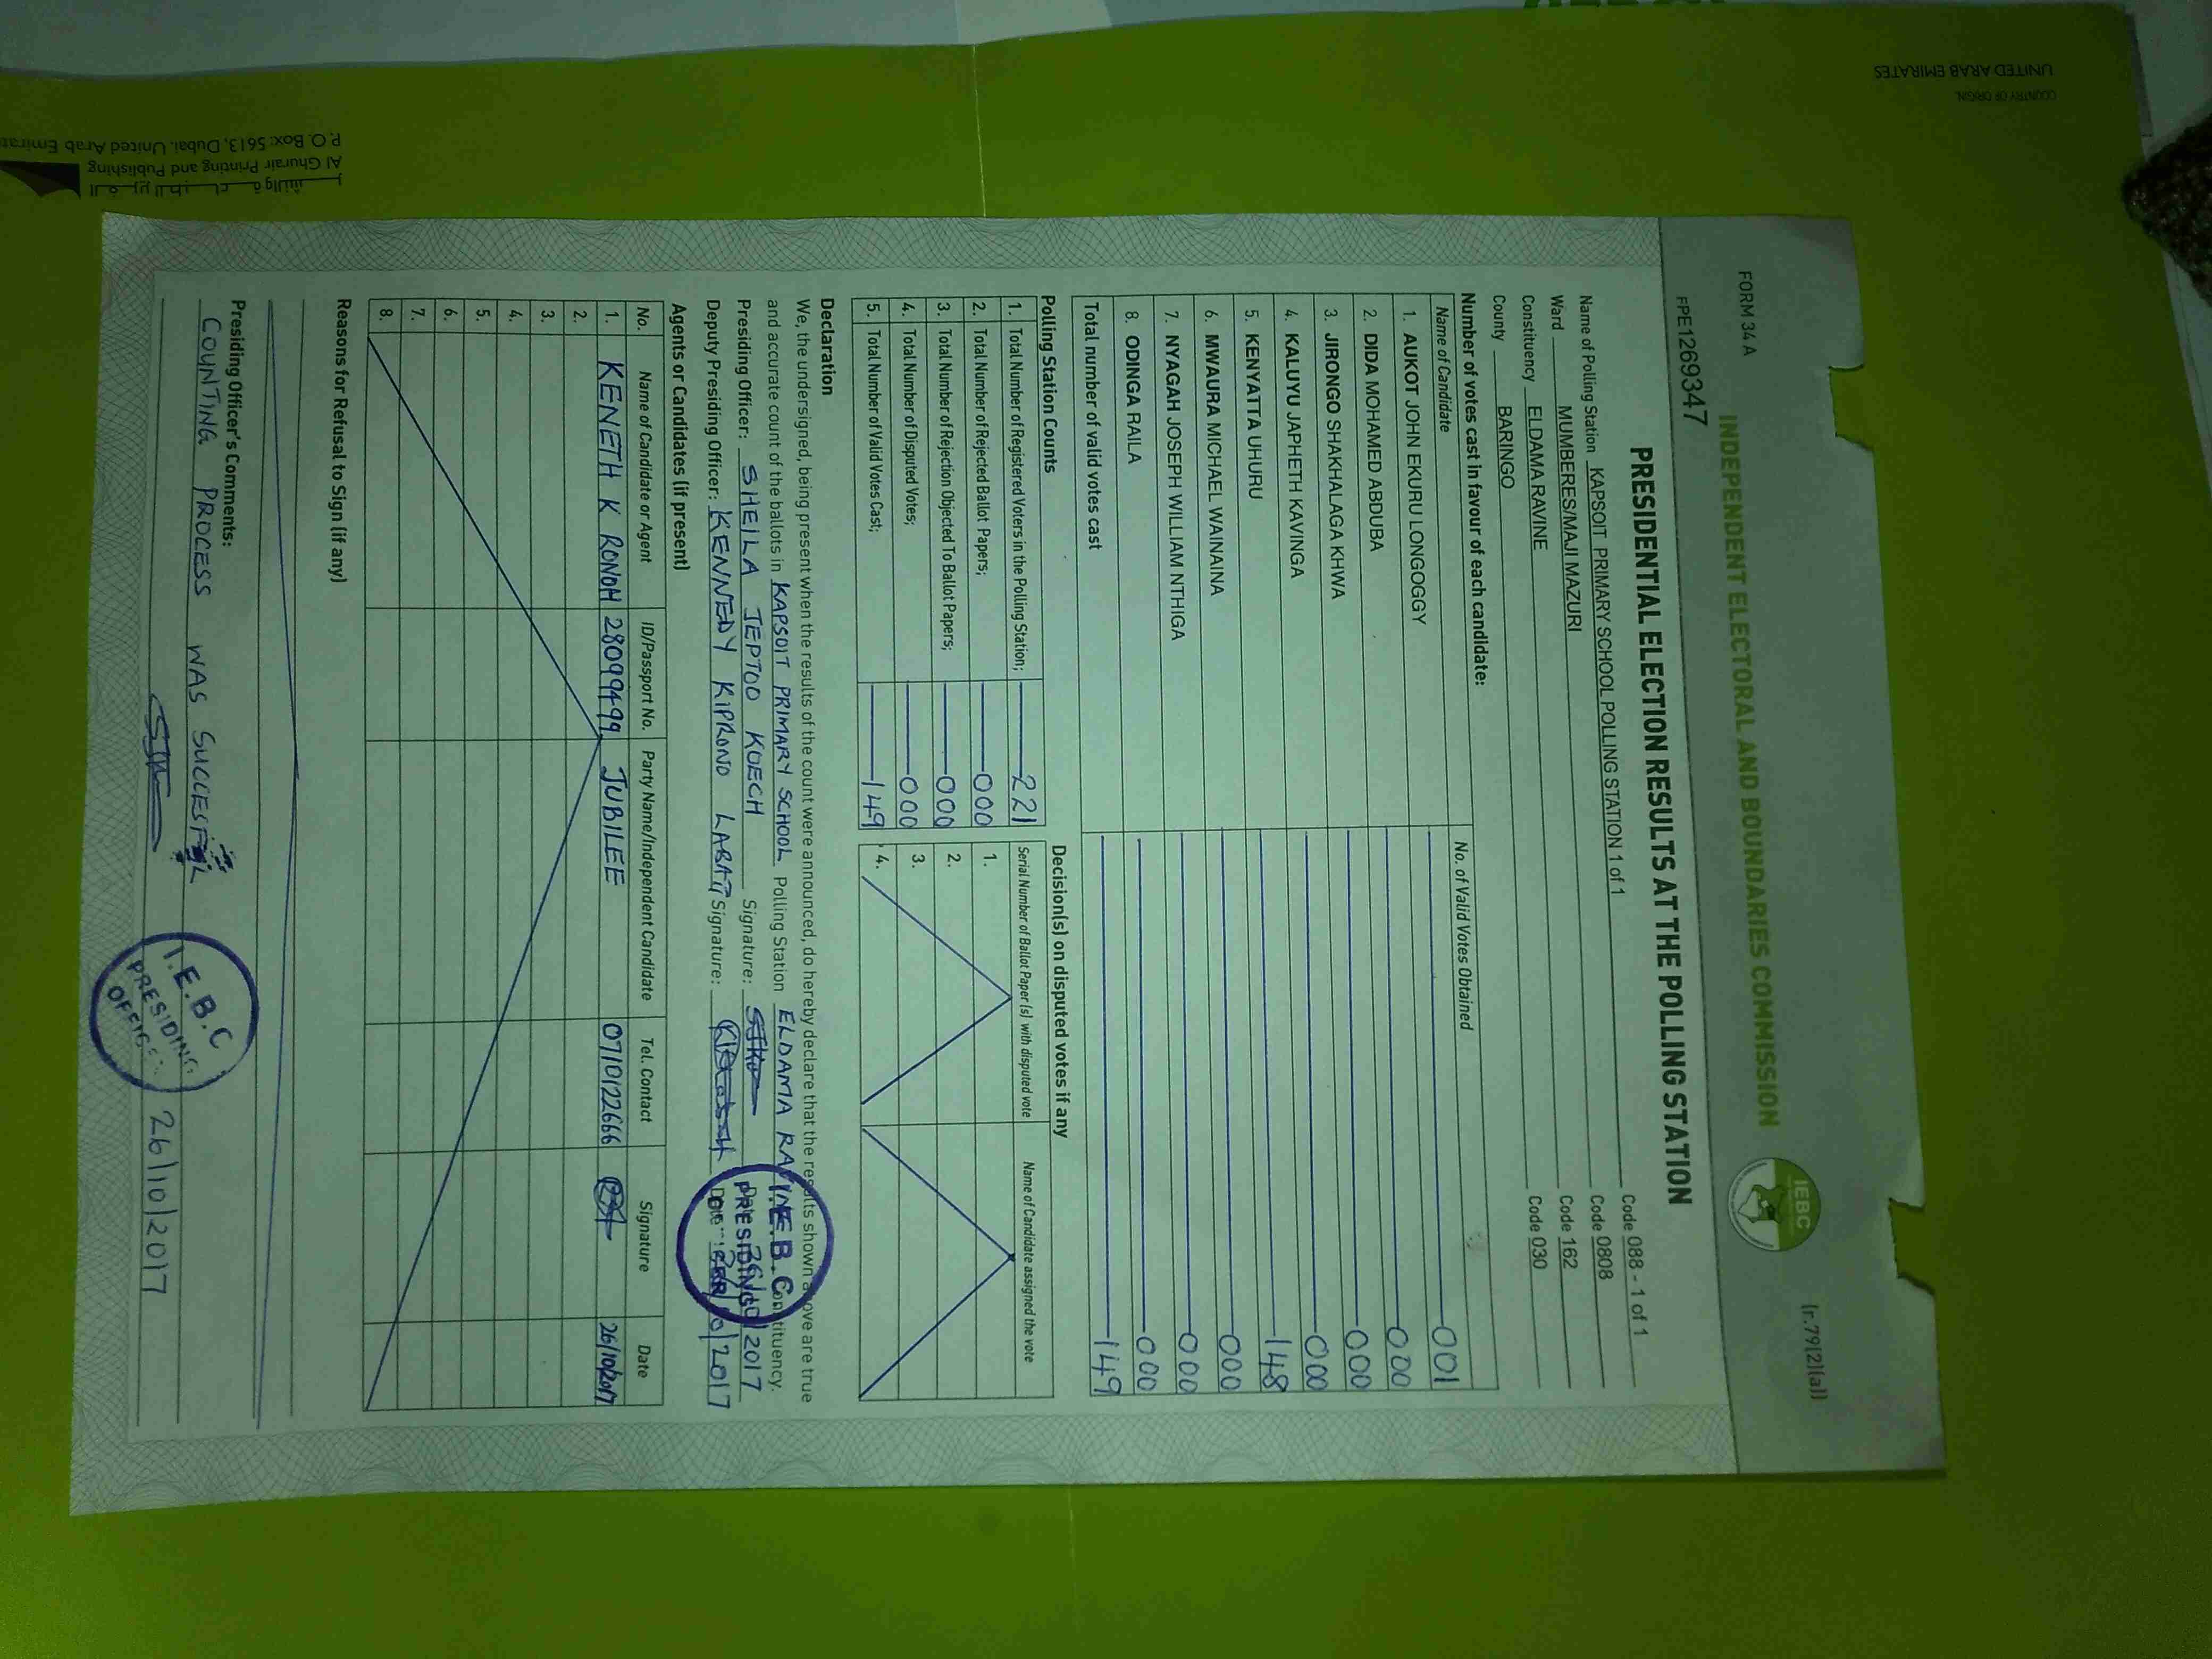 UNITED ARAB EMIRATES
COUNTRY OF ORIGIN:
P.O. Box: 5613, Dubai, United Arab Emirat
Al Ghurair Printing and Publishing
FORM 34 A
(r.79(2)(a))
INDEPENDENT ELECTORAL AND BOUNDARIES COMMISSION
IEBC
FPE1269347
PRESIDENTIAL ELECTION RESULTS AT THE POLLING STATION
Name of Polling Station KAPSOIT PRIMARY SCHOOL POLLING STATION 1 of 1 Code 088 - 1 of 1
Code 0808
Ward MUMBERES/MAJI MAZURI Code 162
Constituency ELDAMA RAVINE Code 030
County BARINGO
Number of votes cast in favour of each candidate:
Name of Candidate No. of Valid Votes Obtained
1. AUKOT JOHN EKURU LONGOGGY 001
2. DIDA MOHAMED ABDUBA 000
3. JIRONGO SHAKHALAGA KHWA 000
4. KALUYU JAPHETH KAVINGA 000
5. KENYATTA UHURU 148
6. MWAURA MICHAEL WAINAINA 000
7. NYAGAH JOSEPH WILLIAM NTHIGA 000
8. ODINGA RAILA 000
Total number of valid votes cast 149
Polling Station Counts
1. Total Number of Registered Voters in the Polling Station; 221
2. Total Number of Rejected Ballot Papers; 000
3. Total Number of Rejection Objected To Ballot Papers; 000
4. Total Number of Disputed Votes; 000
5. Total Number of Valid Votes Cast; 149
Decision(s) on disputed votes if any
Serial Number of Ballot Paper (s) with disputed vote Name of Candidate assigned the vote
1.
2.
3.
4.
Declaration
We, the undersigned, being present when the results of the count were announced, do hereby declare that the results shown above are true
and accurate count of the ballots in KAPSOIT PRIMARY SCHOOL Polling Station ELDAMA RAVINE Constituency.
Presiding Officer: SHEILA JEPTOO KOECH Signature: Date 26/10/2017
Deputy Presiding Officer: KENNEDY KIPRONO LABATT Signature: Date /10/2017
I.E.B.C
PRESIDING
Agents or Candidates (if present)
No. Name of Candidate or Agent ID/Passport No. Party Name/Independent Candidate Tel. Contact Signature Date
1. KENETH K RONOH 28099499 JUBILEE 0710122666 26/10/2017
2.
3.
4.
5.
6.
7.
8.
Reasons for Refusal to Sign (if any)
Presiding Officer's Comments:
COUNTING PROCESS WAS SUCCESSFUL
I.E.B.C
PRESIDING
OFFICER
26/10/2017